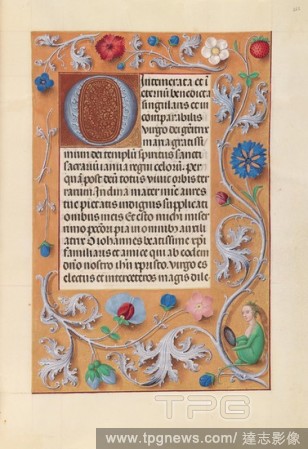 O Intemerata et i
eternū benedicta
singularis et in
comparabilis
virgo dei genitrix
maria gratissi
mum dei templū spiritus sancti
sacrariū ianua regni celorū. Per
quā post deū totus viuit orbis ter
rarum. Inclina mater mīe aures
tue pietatis indignis supplicati
onibus meis Et esto michi miser
rimo pctori pia in omnibꝫ auxilia
O Iohannes beatissime xp̄i
familiaris et amice qui ab eodem
dn̄o nostro ihū xp̄isto. Virgo es
electus et inter ceteros magis dile
TPG
www.tpgnews.com/ 達志影像